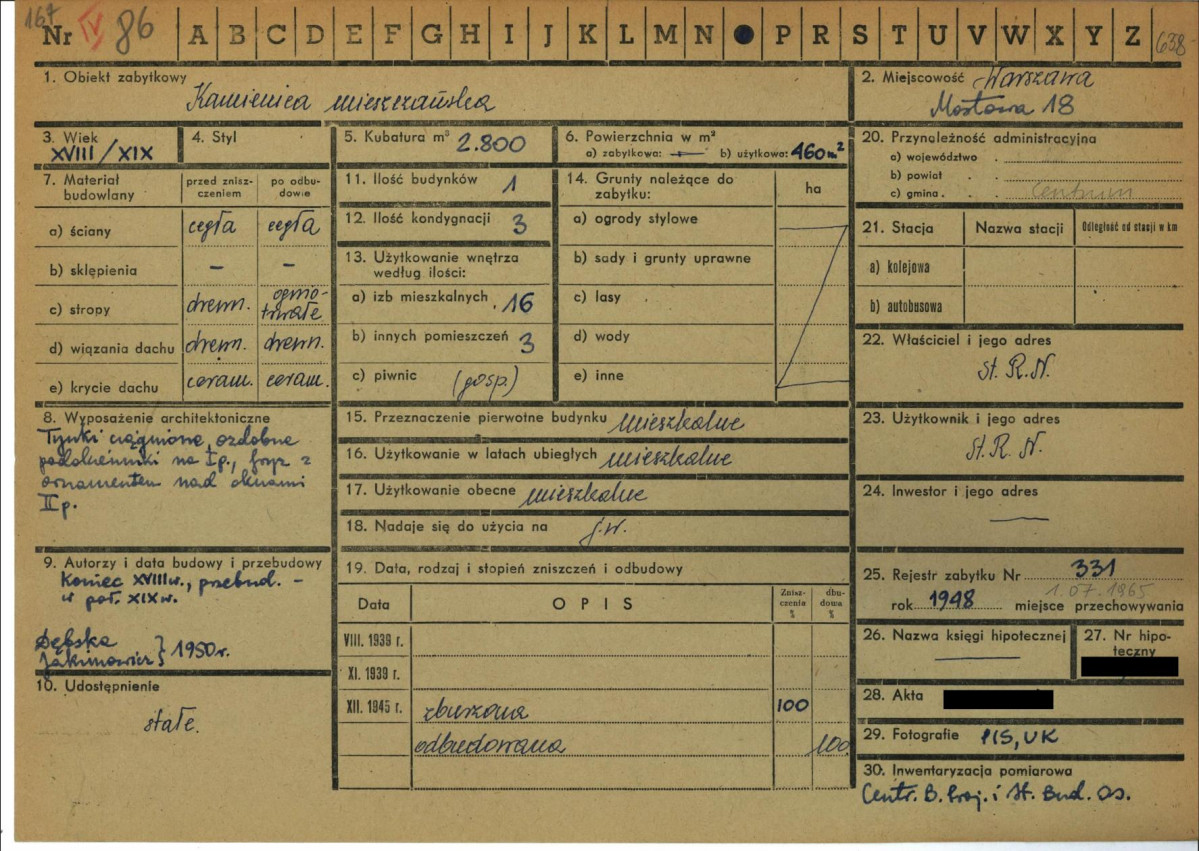 167
Nr IV 86 A B C D E F G H I J K L M N P R S T U V W X Y Z 638
1. Obiekt zabytkowy
Kamienica mieszczańska
2. Miejscowość Warszawa
Mostowa 18
3. Wiek
XVIII/XIX
4. Styl
5. Kubatura m³ 2.800
6. Powierzchnia w m²
a) zabytkowa: — b) użytkowa: 460m²
7. Materiał budowlany
przed zniszczeniem
po odbudowie
a) ściany cegła cegła
b) sklepienia – –
c) stropy drewn. ognio-trwałe
d) wiązania dachu drewn. drewn.
e) krycie dachu ceram. ceram.
8. Wyposażenie architektoniczne
Tynki ciągnione, ozdobne
podokienniki na Ip., fryz z
ornamentem nad oknami
IIp.
9. Autorzy i data budowy i przebudowy
Koniec XVIIIw., przebud. –
w poł. XIXw.
Dębska
Jakimowicz } 1950r.
10. Udostępnienie
stałe.
11. Ilość budynków 1
12. Ilość kondygnacji 3
13. Użytkowanie wnętrza
według ilości:
a) izb mieszkalnych . 16
b) innych pomieszczeń 3
c) piwnic (gosp.)
14. Grunty należące do
zabytku:
ha
a) ogrody stylowe
b) sady i grunty uprawne
c) lasy
d) wody
e) inne
15. Przeznaczenie pierwotne budynku mieszkalne
16. Użytkowanie w latach ubiegłych mieszkalne
17. Użytkowanie obecne mieszkalne
18. Nadaje się do użycia na j.w.
19. Data, rodzaj i stopień zniszczeń i odbudowy
Data OPIS Zniszczenia % dbudowa %
VIII. 1939 r.
XI. 1939 r.
XII. 1945 r. zburzona 100
odbudowana 100
20. Przynależność administracyjna
a) województwo .
b) powiat . .
c) gmina . . Centrum
21. Stacja Nazwa stacji Odległość od stacji w km
a) kolejowa
b) autobusowa
22. Właściciel i jego adres
St. R.N.
23. Użytkownik i jego adres
St. R. N.
24. Inwestor i jego adres
—
25. Rejestr zabytku Nr 331
1.07.1965
rok 1948 miejsce przechowywania
26. Nazwa księgi hipotecznej
—
27. Nr hipo-
teczny
28. Akta
29. Fotografie PIS, UK
30. Inwentaryzacja pomiarowa
Centr. B. Proj. i St. Bud. Os.